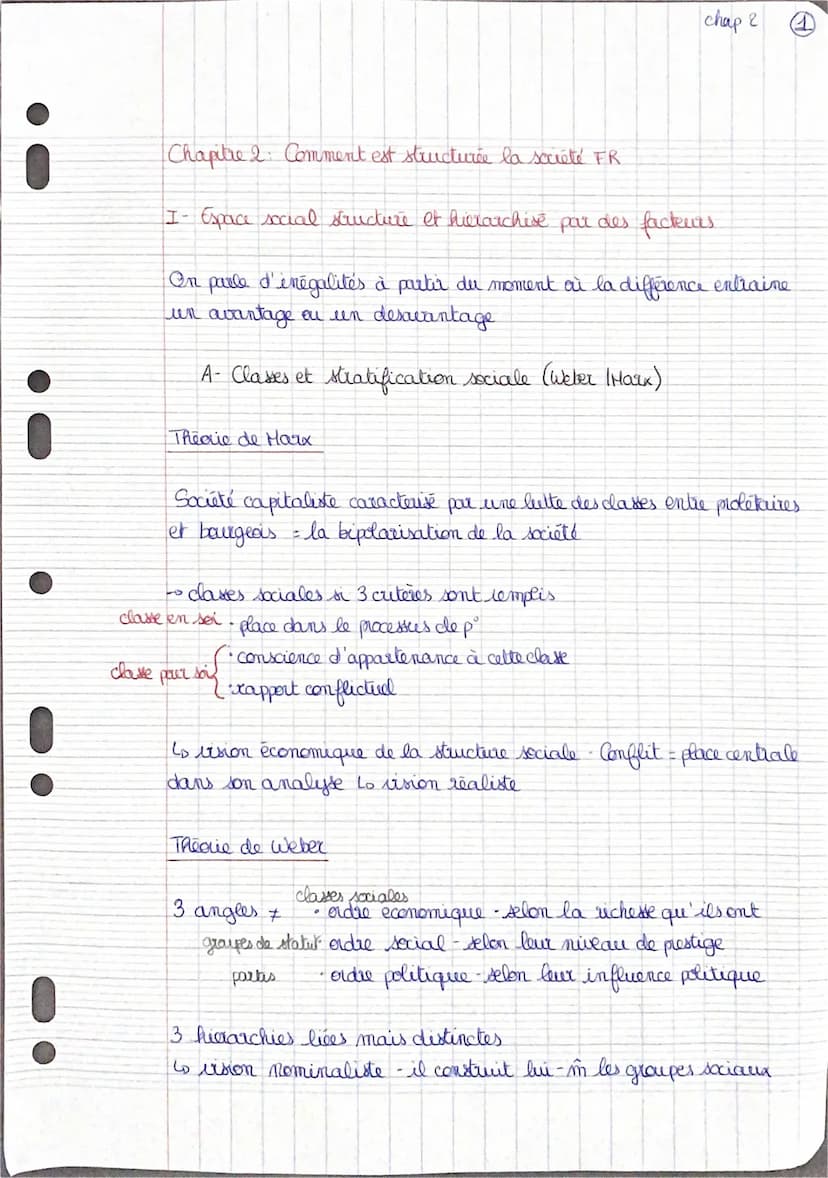 chap 2 1
Chapitre 2: Comment est structurée la société FR
I- Espace social structuré et hiérarchisé par des facteurs
On parle d'inégalités à partir du moment où la différence entraine
un avantage ou un desavantage
A- Classes et stratification sociale (Weber / Marx)
Théorie de Marx
Société capitaliste caracterisé par une lutte des classes entre prolétaires
et bourgeois = la bipolarisation de la société
→ classes sociales si 3 critères sont remplis
classe en soi · place dans le processus de p°
classe pour soi { · conscience d'appartenance à cette classe
· rapport conflictuel
↳ vision économique de la structure sociale · Conflit = place centrale
dans son analyse ↳ vision réaliste
Théorie de Weber
3 angles ≠ classes sociales · ordre économique - selon la richesse qu'ils ont
groupes de statut · ordre social - selon leur niveau de prestige
partis · ordre politique - selon leur influence politique
3 hiérarchies liées mais distinctes
↳ vision nominaliste - il construit lui-m̂ les groupes sociaux